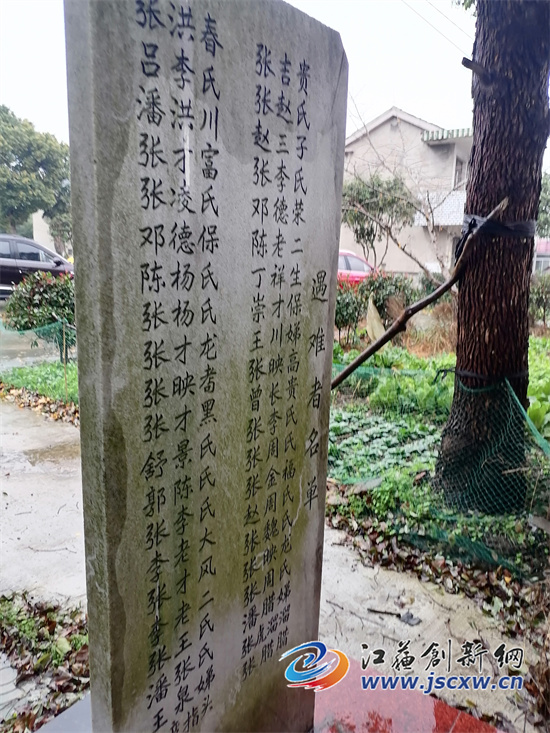 遇难者名单
张吉贵
张赵氏
赵三子
张李氏
邓德荣
陈老二
丁祥生
崇才保
王川娣
张映高
曾长贵
张李氏
张周氏
张金福
赵周氏
张魏氏
张映龙
张周氏
潘腊娣
张洪春
吕李氏
潘洪川
张才富
张凌氏
邓德保
陈杨氏
张杨氏
张才龙
张映者
张才黑
张景氏
舒陈氏
郭李氏
张老大
李才风
张老二
李王氏
张张氏
潘泉娣
江苏创新网
www.jscxw.cn